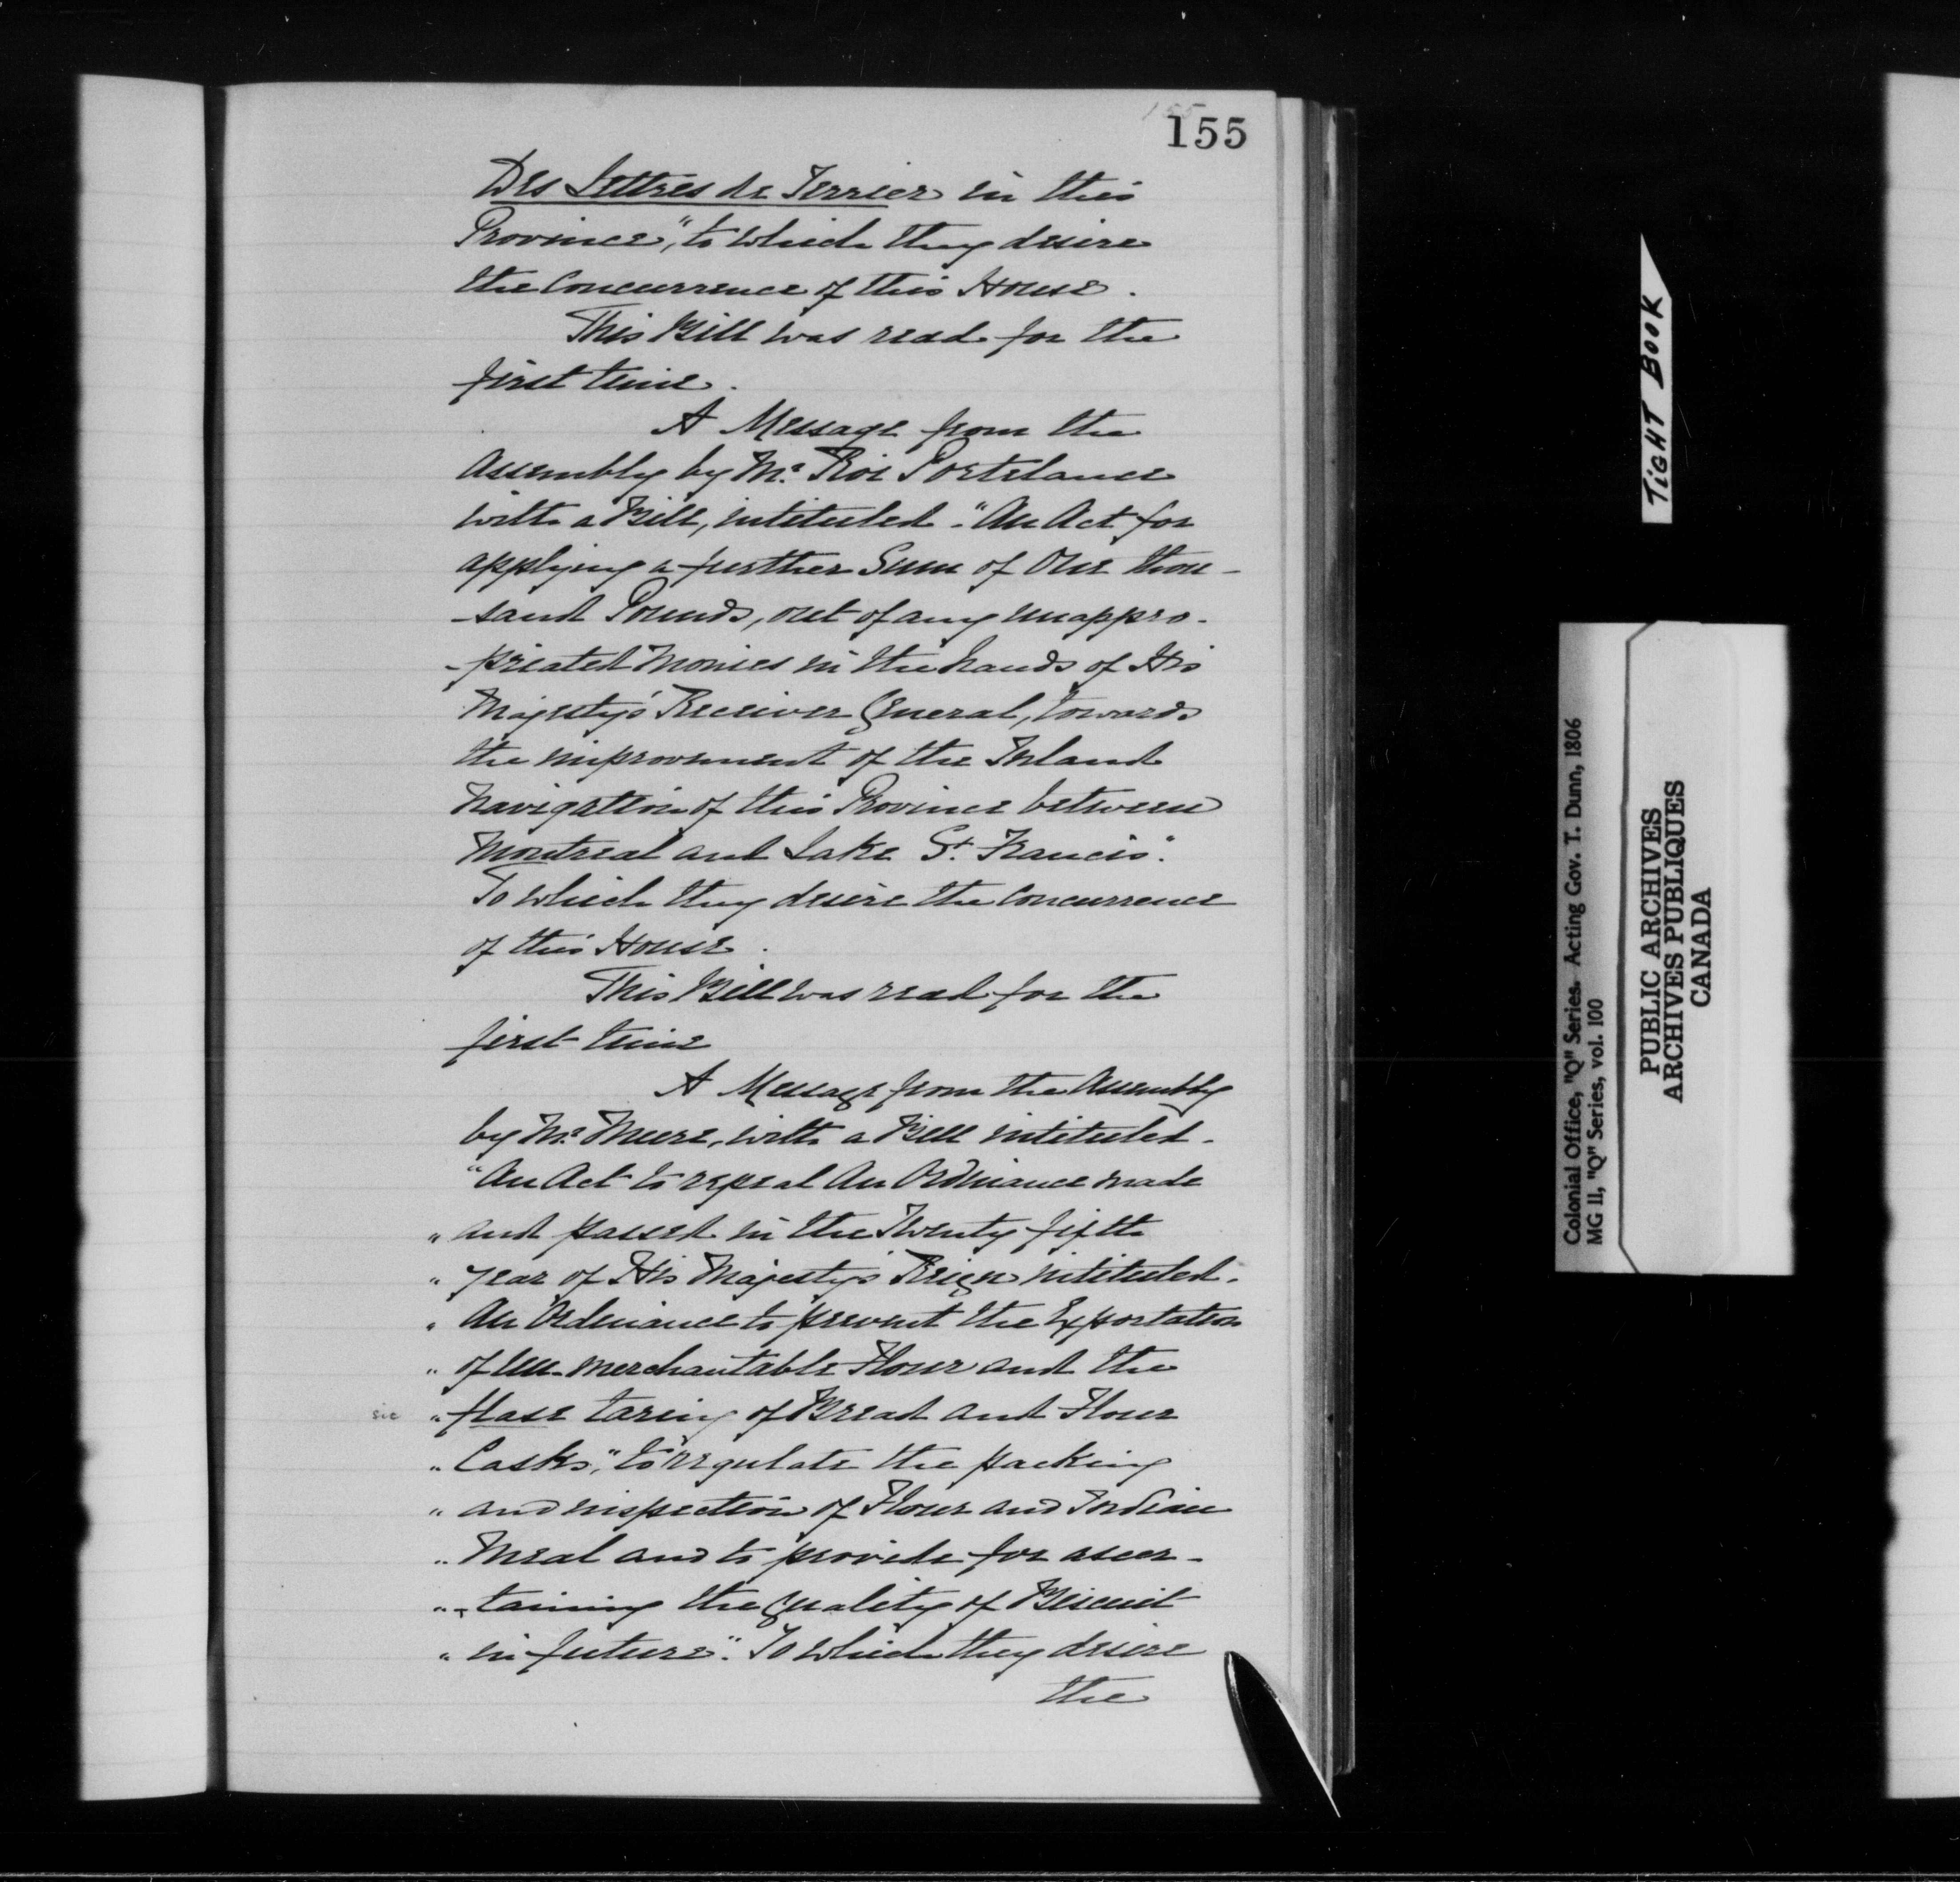 155
155
Des Lettres de Terrier in this
Province", to which they desire
the Concurrence of this House.
This Bill was read for the
first time.
A Message from the
Assembly by Mr. Roi Portelance
with a Bill, intituled "An Act for
applying a further Sum of One thou-
-sand Pounds, out of any unappro-
-priated Monies in the hands of His
Majesty's Receiver General, towards
the improvement of the Inland
Navigation of this Province between
Montreal and Lake St. Francis".
To which they desire the Concurrence
of this House.
This Bill was read for the
first time
A Message from the Assembly
by Mr. Mure, with a Bill intituled.
"An Act to repeal An Ordinance made
" and passed in the Twenty fifth
" Year of His Majesty's Reign intituled.
" An Ordinance to prevent the Exportation
" of un-merchantable Flour and the
sic " flase taring of Bread and Flour
" Casks," to regulate the packing
" and inspection of Flour and Indian
" Meal and to provide for ascer-
" -taining the quality of Biscuit
" in future". To which they desire
the
TIGHT BOOK
Colonial Office, "Q" Series. Acting Gov. T. Dunn, 1806
MG 11, "Q" Series, vol. 100
PUBLIC ARCHIVES
ARCHIVES PUBLIQUES
CANADA